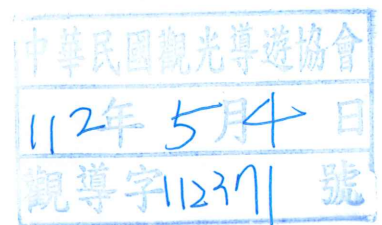 中華民國觀光導遊協會
112年5月4日
觀導字112371號